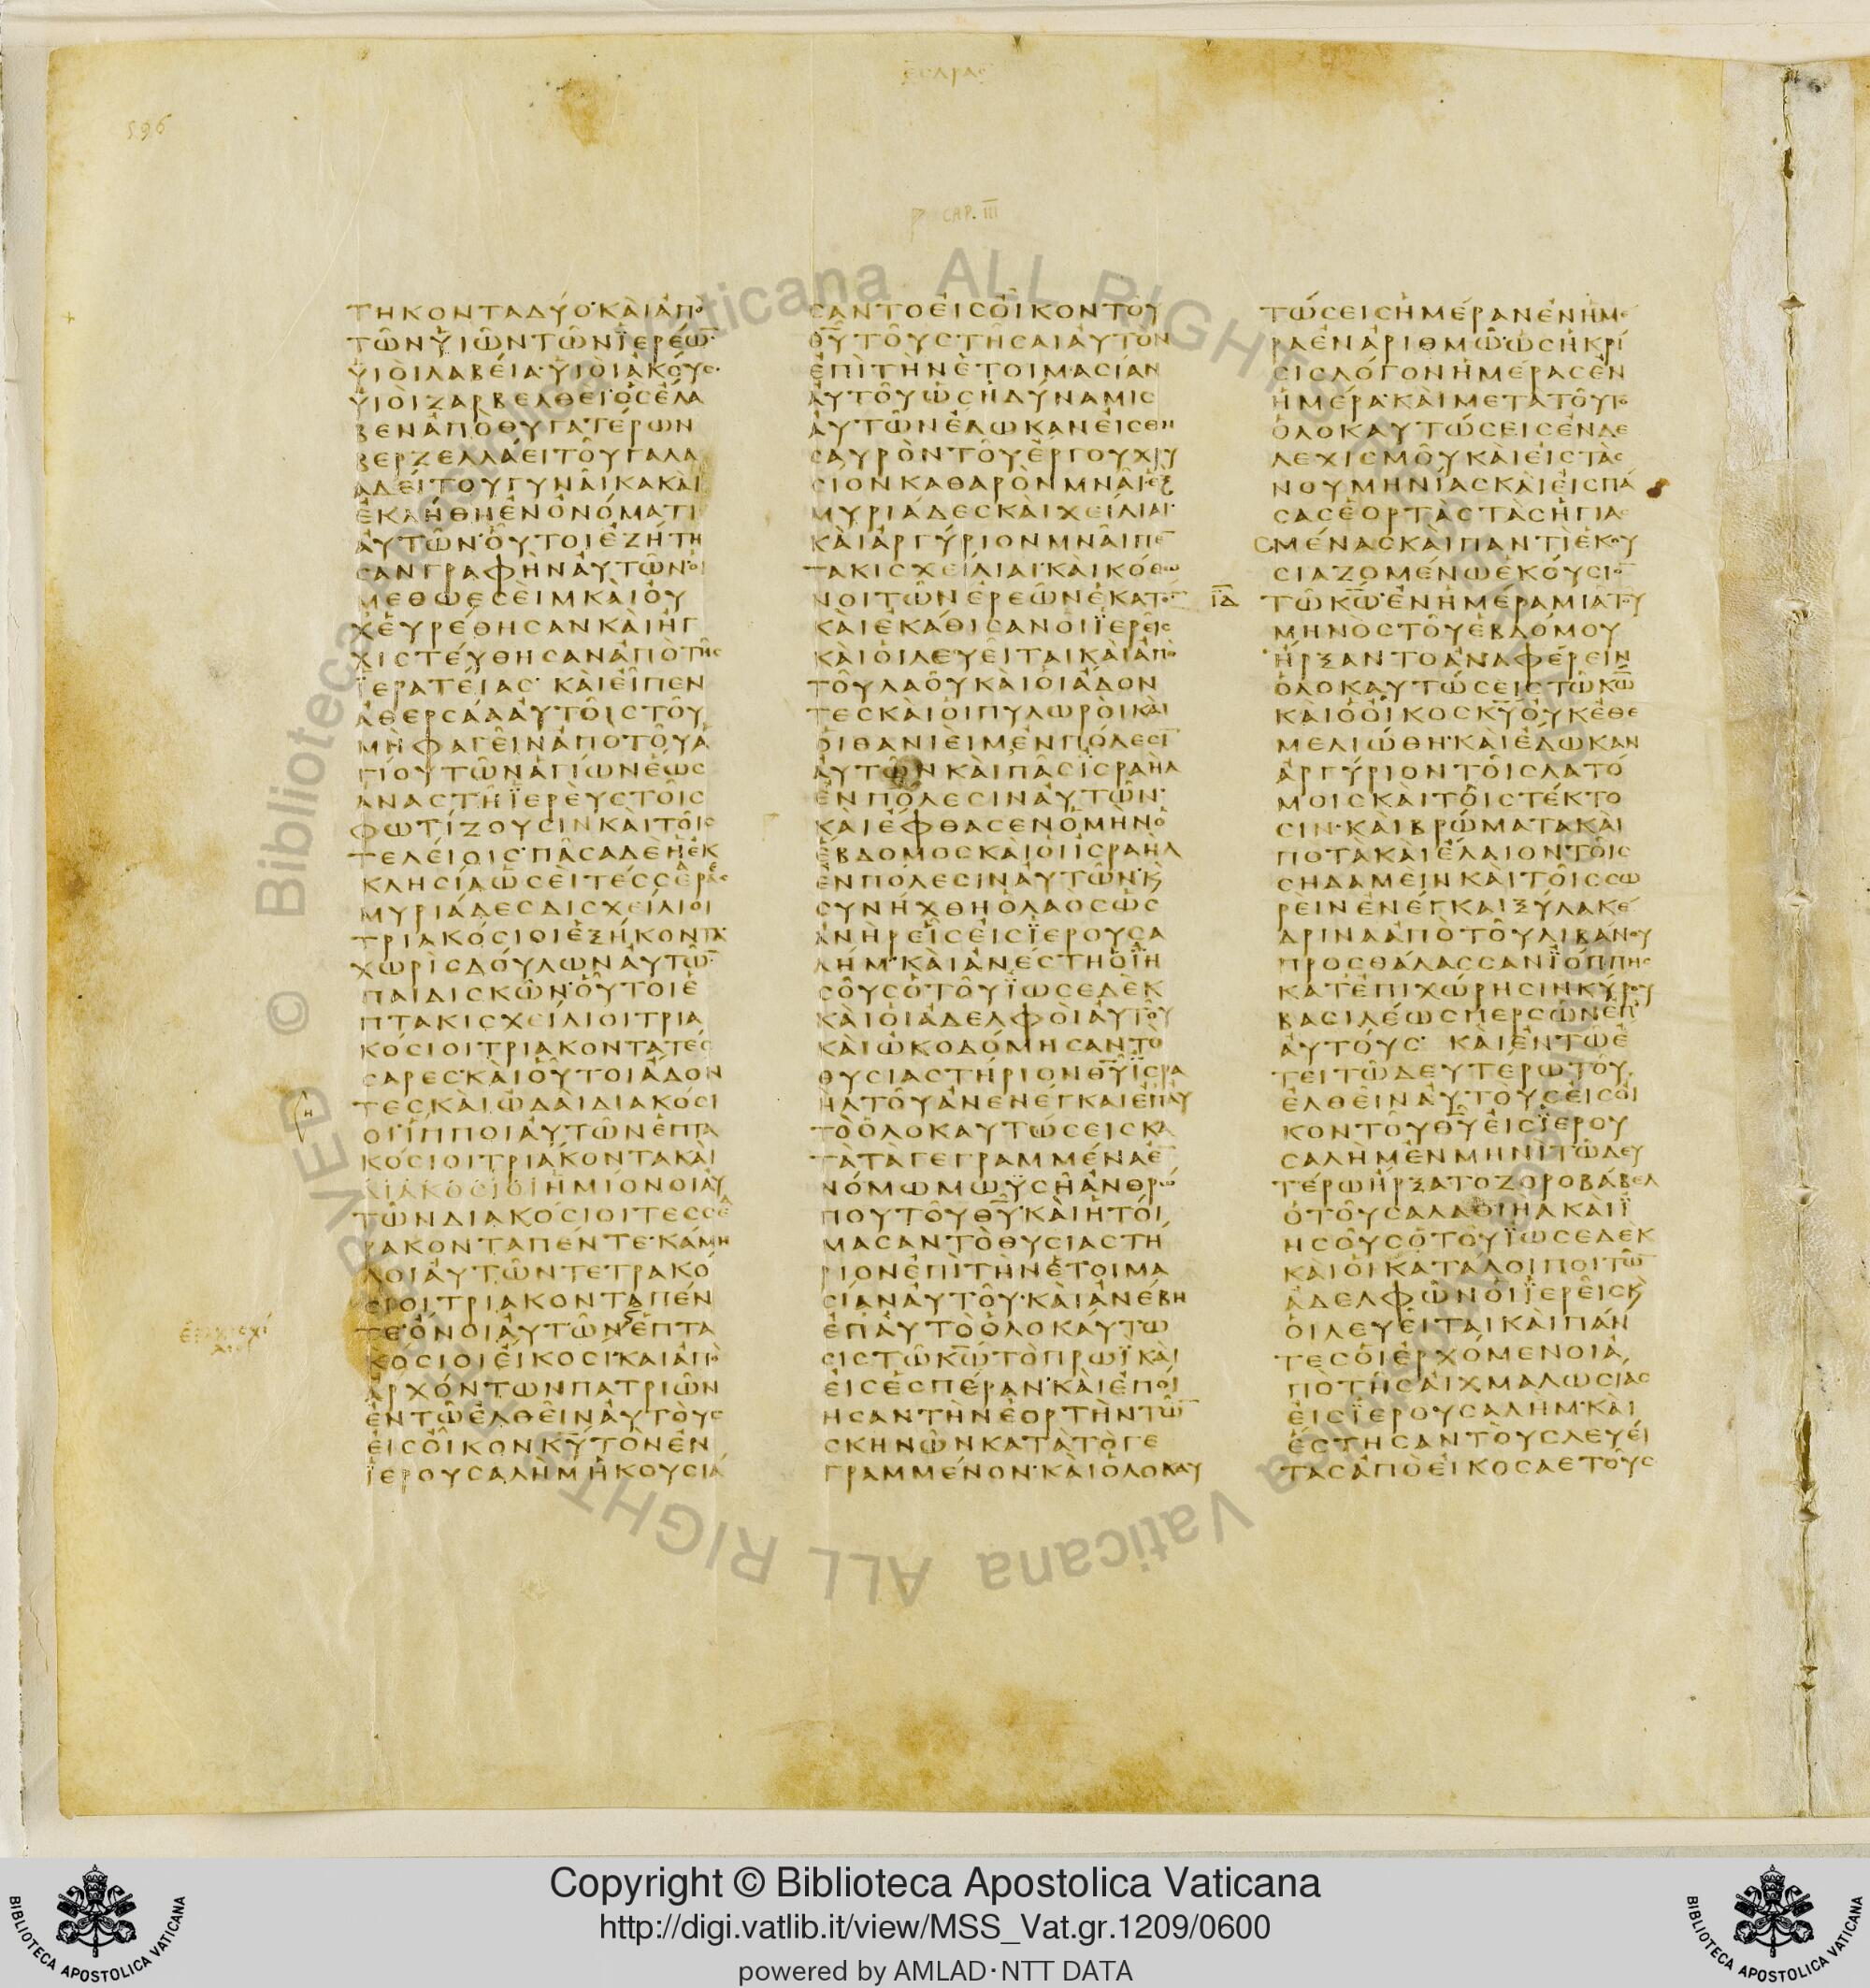 εσδρας
596
CAP. III
ΤΗΚΟΝΤΑΔΥΟ·ΚΑΙΑΠΟ
ΤΩΝΥΙΩΝΤΩΝΪΕΡΕΩ̅·
ΥΙΟΙΛΑΒΕΙΑ·ΥΙΟΙΑΚΟΥΣ·
ΥΙΟΙΖΑΡΒΕΛΘΕΙ·ΟΣΕΛΑ
ΒΕΝΑΠΟΘΥΓΑΤΕΡΩΝ
ΒΕΡΖΕΛΛΑΕΙΤΟΥΓΑΛΑ
ΑΔΕΙΤΟΥΓΥΝΑΙΚΑΚΑΙ
ΕΚΛΗΘΗΕΝΟΝΟΜΑΤΙ
ΑΥΤΩΝ·ΟΥΤΟΙΕΖΗΤΗ
ΣΑΝΓΡΑΦΗΝΑΥΤΩΝ·ΟΙ
ΜΕΘΩΕΣΕΙΜΚΑΙΟΥ
ΧΕΥΡΕΘΗΣΑΝΚΑΙΗΓ
ΧΙΣΤΕΥΘΗΣΑΝΑΠΟΤΗΣ
ΪΕΡΑΤΕΙΑΣ· ΚΑΙΕΙΠΕΝ
ΑΘΕΡΣΑΑΑΥΤΟΙΣΤΟΥ
ΜΗΦΑΓΕΙΝΑΠΟΤΟΥΑ
ΓΙΟΥΤΩΝΑΓΙΩΝΕΩΣ
ΑΝΑΣΤΗΪΕΡΕΥΣΤΟΙΣ
ΦΩΤΙΖΟΥΣΙΝΚΑΙΤΟΙΣ
ΤΕΛΕΙΟΙΣ·ΠΑΣΑΔΕΗΕΚ
ΚΛΗΣΙΑΩΣΕΙΤΕΣΣΕΡΕΣ
ΜΥΡΙΑΔΕΣΔΙΣΧΕΙΛΙΟΙ
ΤΡΙΑΚΟΣΙΟΙΕΞΗΚΟΝΤΑ·
ΧΩΡΙΣΔΟΥΛΩΝΑΥΤΩ̅·
ΠΑΙΔΙΣΚΩΝ·ΟΥΤΟΙΕ
ΠΤΑΚΙΣΧΕΙΛΙΟΙΤΡΙΑ
ΚΟΣΙΟΙΤΡΙΑΚΟΝΤΑΤΕΣ
ΣΑΡΕΣ·ΚΑΙΟΥΤΟΙΑΔΟΝ
ΤΕΣΚΑΙΩΔΑΙΔΙΑΚΟΣΙ
ΟΙ·ΙΠΠΟΙΑΥΤΩΝΕΠΤΑ
ΚΟΣΙΟΙΤΡΙΑΚΟΝΤΑΚΑΙ
ΔΙΑΚΟΣΙΟΙΗΜΙΟΝΟΙΑΥ
ΤΩΝΔΙΑΚΟΣΙΟΙΤΕΣΣΕ
ΡΑΚΟΝΤΑΠΕΝΤΕ·ΚΑΜΗ
ΛΟΙΑΥΤΩΝΤΕΤΡΑΚΟ
ΣΙΟΙΤΡΙΑΚΟΝΤΑΠΕΝ
ΤΕ·ΟΝΟΙΑΥΤΩΝΕΠΤΑ
ΚΟΣΙΟΙΕΙΚΟΣΙ·ΚΑΙΑΠΟ
ΑΡΧΟΝΤΩΝΠΑΤΡΙΩΝ
ΕΝΤΩΕΛΘΕΙΝΑΥΤΟΥΣ
ΕΙΣΟΙΚΟΝΚ̅Υ̅ΤΟΝΕΝ
ΪΕΡΟΥΣΑΛΗΜΗΚΟΥΣΙΑ
ΣΑΝΤΟΕΙΣΟΙΚΟΝΤΟΥ
Θ̅Υ̅ΤΟΥΣΤΗΣΑΙΑΥΤΟΝ
ΕΠΙΤΗΝΕΤΟΙΜΑΣΙΑΝ
ΑΥΤΟΥΩΣΗΔΥΝΑΜΙΣ
ΑΥΤΩΝΕΔΩΚΑΝΕΙΣΘΗ
ΣΑΥΡΟΝΤΟΥΕΡΓΟΥΧΡΥ
ΣΙΟΝΚΑΘΑΡΟΝΜΝΑΙΕΞ
ΜΥΡΙΑΔΕΣΚΑΙΧΕΙΛΙΑΙ·
ΚΑΙΑΡΓΥΡΙΟΝΜΝΑΙΠΕ̅
ΤΑΚΙΣΧΕΙΛΙΑΙ·ΚΑΙΚΟΘΩ
ΝΟΙΤΩΝΕΡΕΩΝΕΚΑΤΟ̅
ΚΑΙΕΚΑΘΙΣΑΝΟΙΪΕΡΕΙΣ
ΚΑΙΟΙΛΕΥΕΙΤΑΙΚΑΙΑΠΟ
ΤΟΥΛΑΟΥΚΑΙΟΙΑΔΟΝ
ΤΕΣΚΑΙΟΙΠΥΛΩΡΟΙΚΑΙ
ΟΙΘΑΝΙΕΙΜΕΝΠΟΛΕΣΙ̅
ΑΥΤΩΝΚΑΙΠΑΣΙΣΡΑΗΛ
ΕΝΠΟΛΕΣΙΝΑΥΤΩΝ·
ΚΑΙΕΦΘΑΣΕΝΟΜΗΝΟ
ΕΒΔΟΜΟΣΚΑΙΟΙΙΣΡΑΗΛ
ΕΝΠΟΛΕΣΙΝΑΥΤΩΝ·Κ
ΣΥΝΗΧΘΗΟΛΑΟΣΩΣ
ΑΝΗΡΕΙΣΕΙΣΪΕΡΟΥΣΑ
ΛΗΜ·ΚΑΙΑΝΕΣΤΗΟΪΗ
ΣΟΥΣΟΤΟΥΪΩΣΕΔΕΚ
ΚΑΙΟΙΑΔΕΛΦΟΙΑΥΤΟΥ
ΚΑΙΩΚΟΔΟΜΗΣΑΝΤΟ
ΘΥΣΙΑΣΤΗΡΙΟΝΘ̅Υ̅ΪΣΡΑ
ΗΛΤΟΥΑΝΕΝΕΓΚΑΙΕΠΑΥ
ΤΟΟΛΟΚΑΥΤΩΣΕΙΣΚΑ
ΤΑΤΑΓΕΓΡΑΜΜΕΝΑΕ̅
ΝΟΜΩΜΩΥΣΗΑΝΘΡΩ
ΠΟΥΤΟΥΘ̅Υ̅·ΚΑΙΗΤΟΙ
ΜΑΣΑΝΤΟΘΥΣΙΑΣΤΗ
ΡΙΟΝΕΠΙΤΗΝΕΤΟΙΜΑ
ΣΙΑΝΑΥΤΟΥ·ΚΑΙΑΝΕΒΗ
ΕΠΑΥΤΟΟΛΟΚΑΥΤΩ
ΣΙΣΤΩΚ̅Ω̅ΤΟΠΡΩΪΚΑΙ
ΕΙΣΕΣΠΕΡΑΝ·ΚΑΙΕΠΟΙ
ΗΣΑΝΤΗΝΕΟΡΤΗΝΤΩ̅
ΣΚΗΝΩΝΚΑΤΑΤΟΓΕ
ΓΡΑΜΜΕΝΟΝ·ΚΑΙΟΛΟΚΑΥ
ΤΩΣΕΙΣΗΜΕΡΑΝΕΝΗΜΕ
ΡΑΕΝΑΡΙΘΜΩ·ΩΣΗΚΡΙ
ΣΙΣΛΟΓΟΝΗΜΕΡΑΣΕΝ
ΗΜΕΡΑ·ΚΑΙΜΕΤΑΤΟΥΤΟ
ΟΛΟΚΑΥΤΩΣΕΙΣΕΝΔΕ
ΛΕΧΙΣΜΟΥΚΑΙΕΙΣΤΑΣ
ΝΟΥΜΗΝΙΑΣΚΑΙΕΙΣΠΑ
ΣΑΣΕΟΡΤΑΣΤΑΣΗΓΙΑ
ΣΜΕΝΑΣΚΑΙΠΑΝΤΙΕΚΟΥ
ΣΙΑΖΟΜΕΝΩΕΚΟΥΣΙΟ̅
ΙΔ ΤΩΚ̅Ω̅·ΕΝΗΜΕΡΑΜΙΑΤΟΥ
ΜΗΝΟΣΤΟΥΕΒΔΟΜΟΥ
ΗΡΞΑΝΤΟΑΝΑΦΕΡΕΙΝ
ΟΛΟΚΑΥΤΩΣΕΙΣΤΩΚ̅Ω̅
ΚΑΙΟΟΙΚΟΣΚ̅Υ̅ΟΥΚΕΘΕ
ΜΕΛΙΩΘΗ·ΚΑΙΕΔΩΚΑΝ
ΑΡΓΥΡΙΟΝΤΟΙΣΛΑΤΟ
ΜΟΙΣΚΑΙΤΟΙΣΤΕΚΤΟ
ΣΙΝ·ΚΑΙΒΡΩΜΑΤΑΚΑΙ
ΠΟΤΑΚΑΙΕΛΑΙΟΝΤΟΙΣ
ΣΗΔΑΜΕΙΝΚΑΙΤΟΙΣΣΩ
ΡΕΙΝΕΝΕΓΚΑΙΞΥΛΑΚΕ
ΔΡΙΝΑΑΠΟΤΟΥΛΙΒΑΝΟΥ
ΠΡΟΣΘΑΛΑΣΣΑΝΪΟΠΠΗΣ
ΚΑΤΕΠΙΧΩΡΗΣΙΝΚΥΡΟΥ
ΒΑΣΙΛΕΩΣΠΕΡΣΩΝΕΠ
ΑΥΤΟΥΣ· ΚΑΙΕΝΤΩΕ
ΤΕΙΤΩΔΕΥΤΕΡΩΤΟΥ
ΕΛΘΕΙΝΑΥΤΟΥΣΕΙΣΟΙ
ΚΟΝΤΟΥΘ̅Υ̅ΕΙΣΪΕΡΟΥ
ΣΑΛΗΜΕΝΜΗΝΙΤΩΔΕΥ
ΤΕΡΩΗΡΞΑΤΟΖΟΡΟΒΑΒΕΛ
ΟΤΟΥΣΑΛΑΘΙΗΛΚΑΙΪ
ΗΣΟΥΣΟΤΟΥΪΩΣΕΔΕΚ
ΚΑΙΟΙΚΑΤΑΛΟΙΠΟΙΤΩ̅
ΑΔΕΛΦΩΝΟΙΪΕΡΕΙΣΚ
ΟΙΛΕΥΕΙΤΑΙΚΑΙΠΑΝ
ΤΕΣΟΙΕΡΧΟΜΕΝΟΙΑ
ΠΟΤΗΣΑΙΧΜΑΛΩΣΙΑΣ
ΕΙΣΪΕΡΟΥΣΑΛΗΜ·ΚΑΙ
ΕΣΤΗΣΑΝΤΟΥΣΛΕΥΕΙ
ΤΑΣΑΠΟΕΙΚΟΣΑΕΤΟΥΣ
Copyright © Biblioteca Apostolica Vaticana
http://digi.vatlib.it/view/MSS_Vat.gr.1209/0600
powered by AMLAD·NTT DATA
BIBLIOTECA APOSTOLICA VATICANA
BIBLIOTECA APOSTOLICA VATICANA